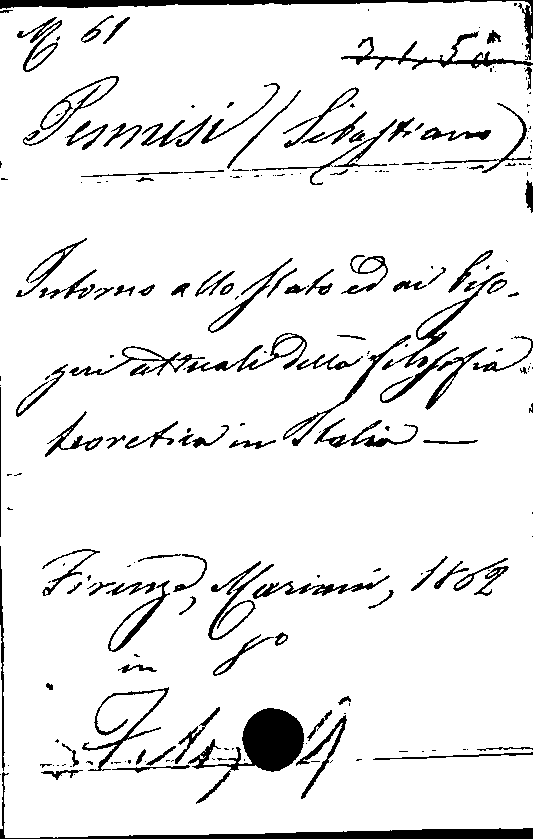 M. 61
3, 1, 5 a
Pennisi (Sebastiano)
Intorno allo stato ed ai biso-
gni attuali della filosofia
teoretica in Italia —
Firenze, Mariani, 1862
in 8º